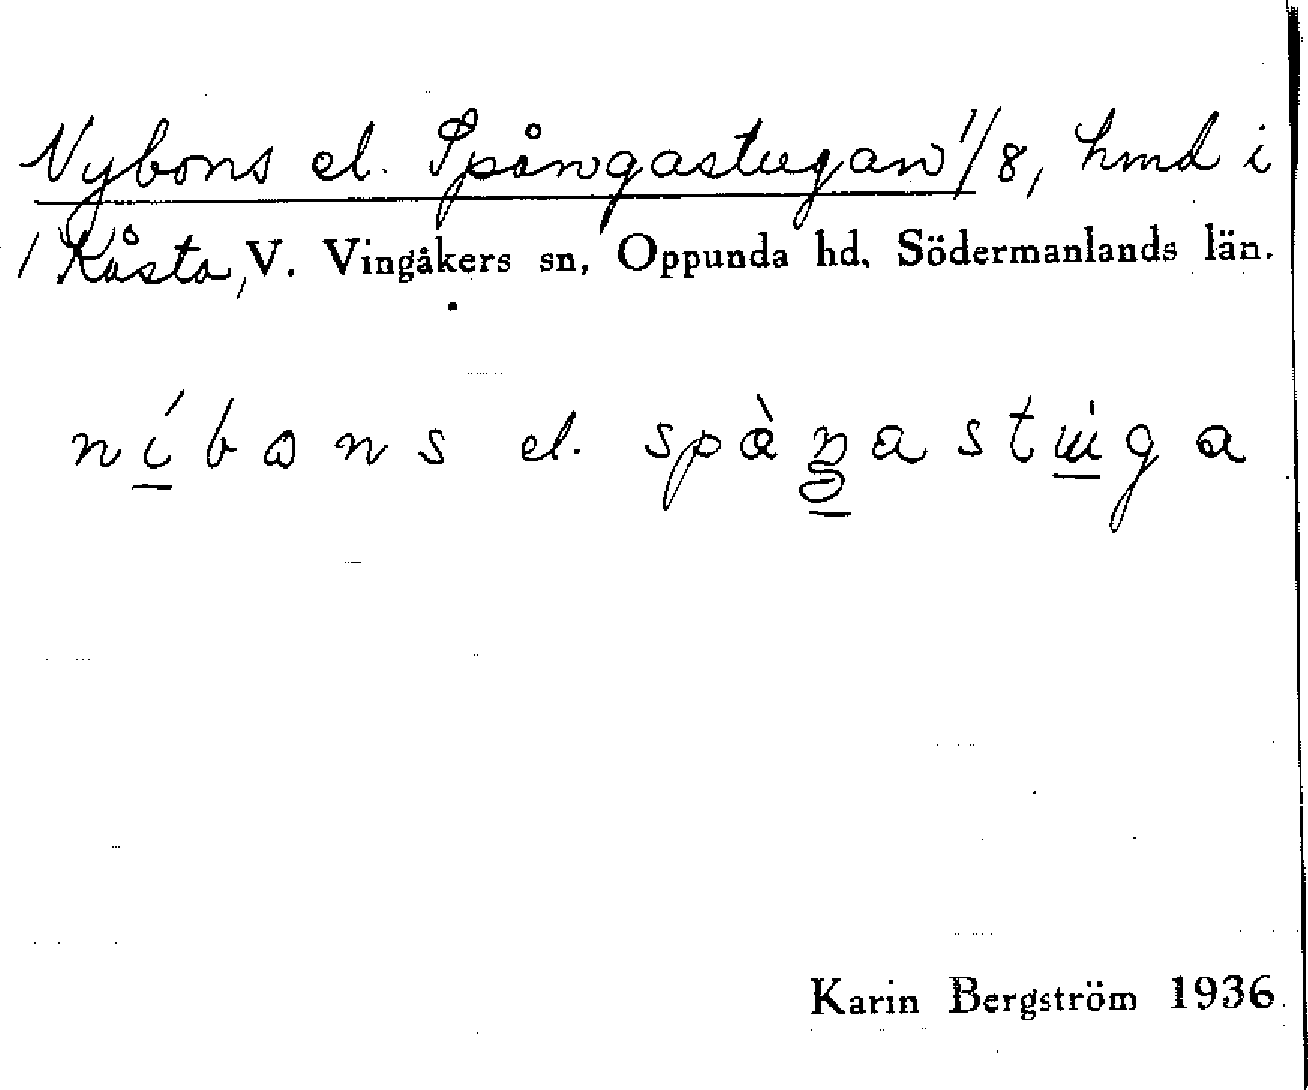 Nybons el. Spångastugan 1/8, hmd i
/ Kåsta, V. Vingåkers sn, Oppunda hd, Södermanlands län.
níbons el. spàŋastúga
Karin Bergström 1936